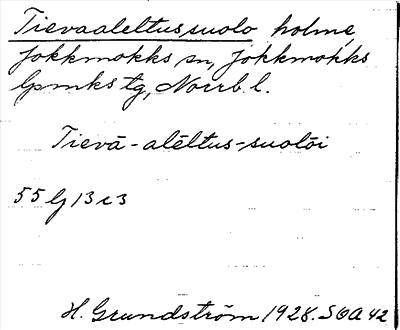 Tievaaleltussuolo holme,
Jokkmokks sn, Jokkmokks
lpmks tg, Norrb. l.
Tievā-alēltus-suolōi
55 lg 13 c 3
H. Grundström 1928. SOA 42